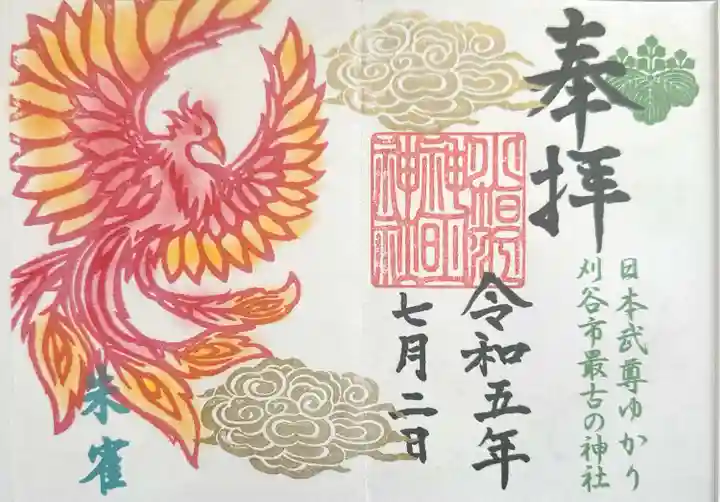 奉拝
日本武尊ゆかり
刈谷市最古の神社
令和五年
七月二日
朱雀